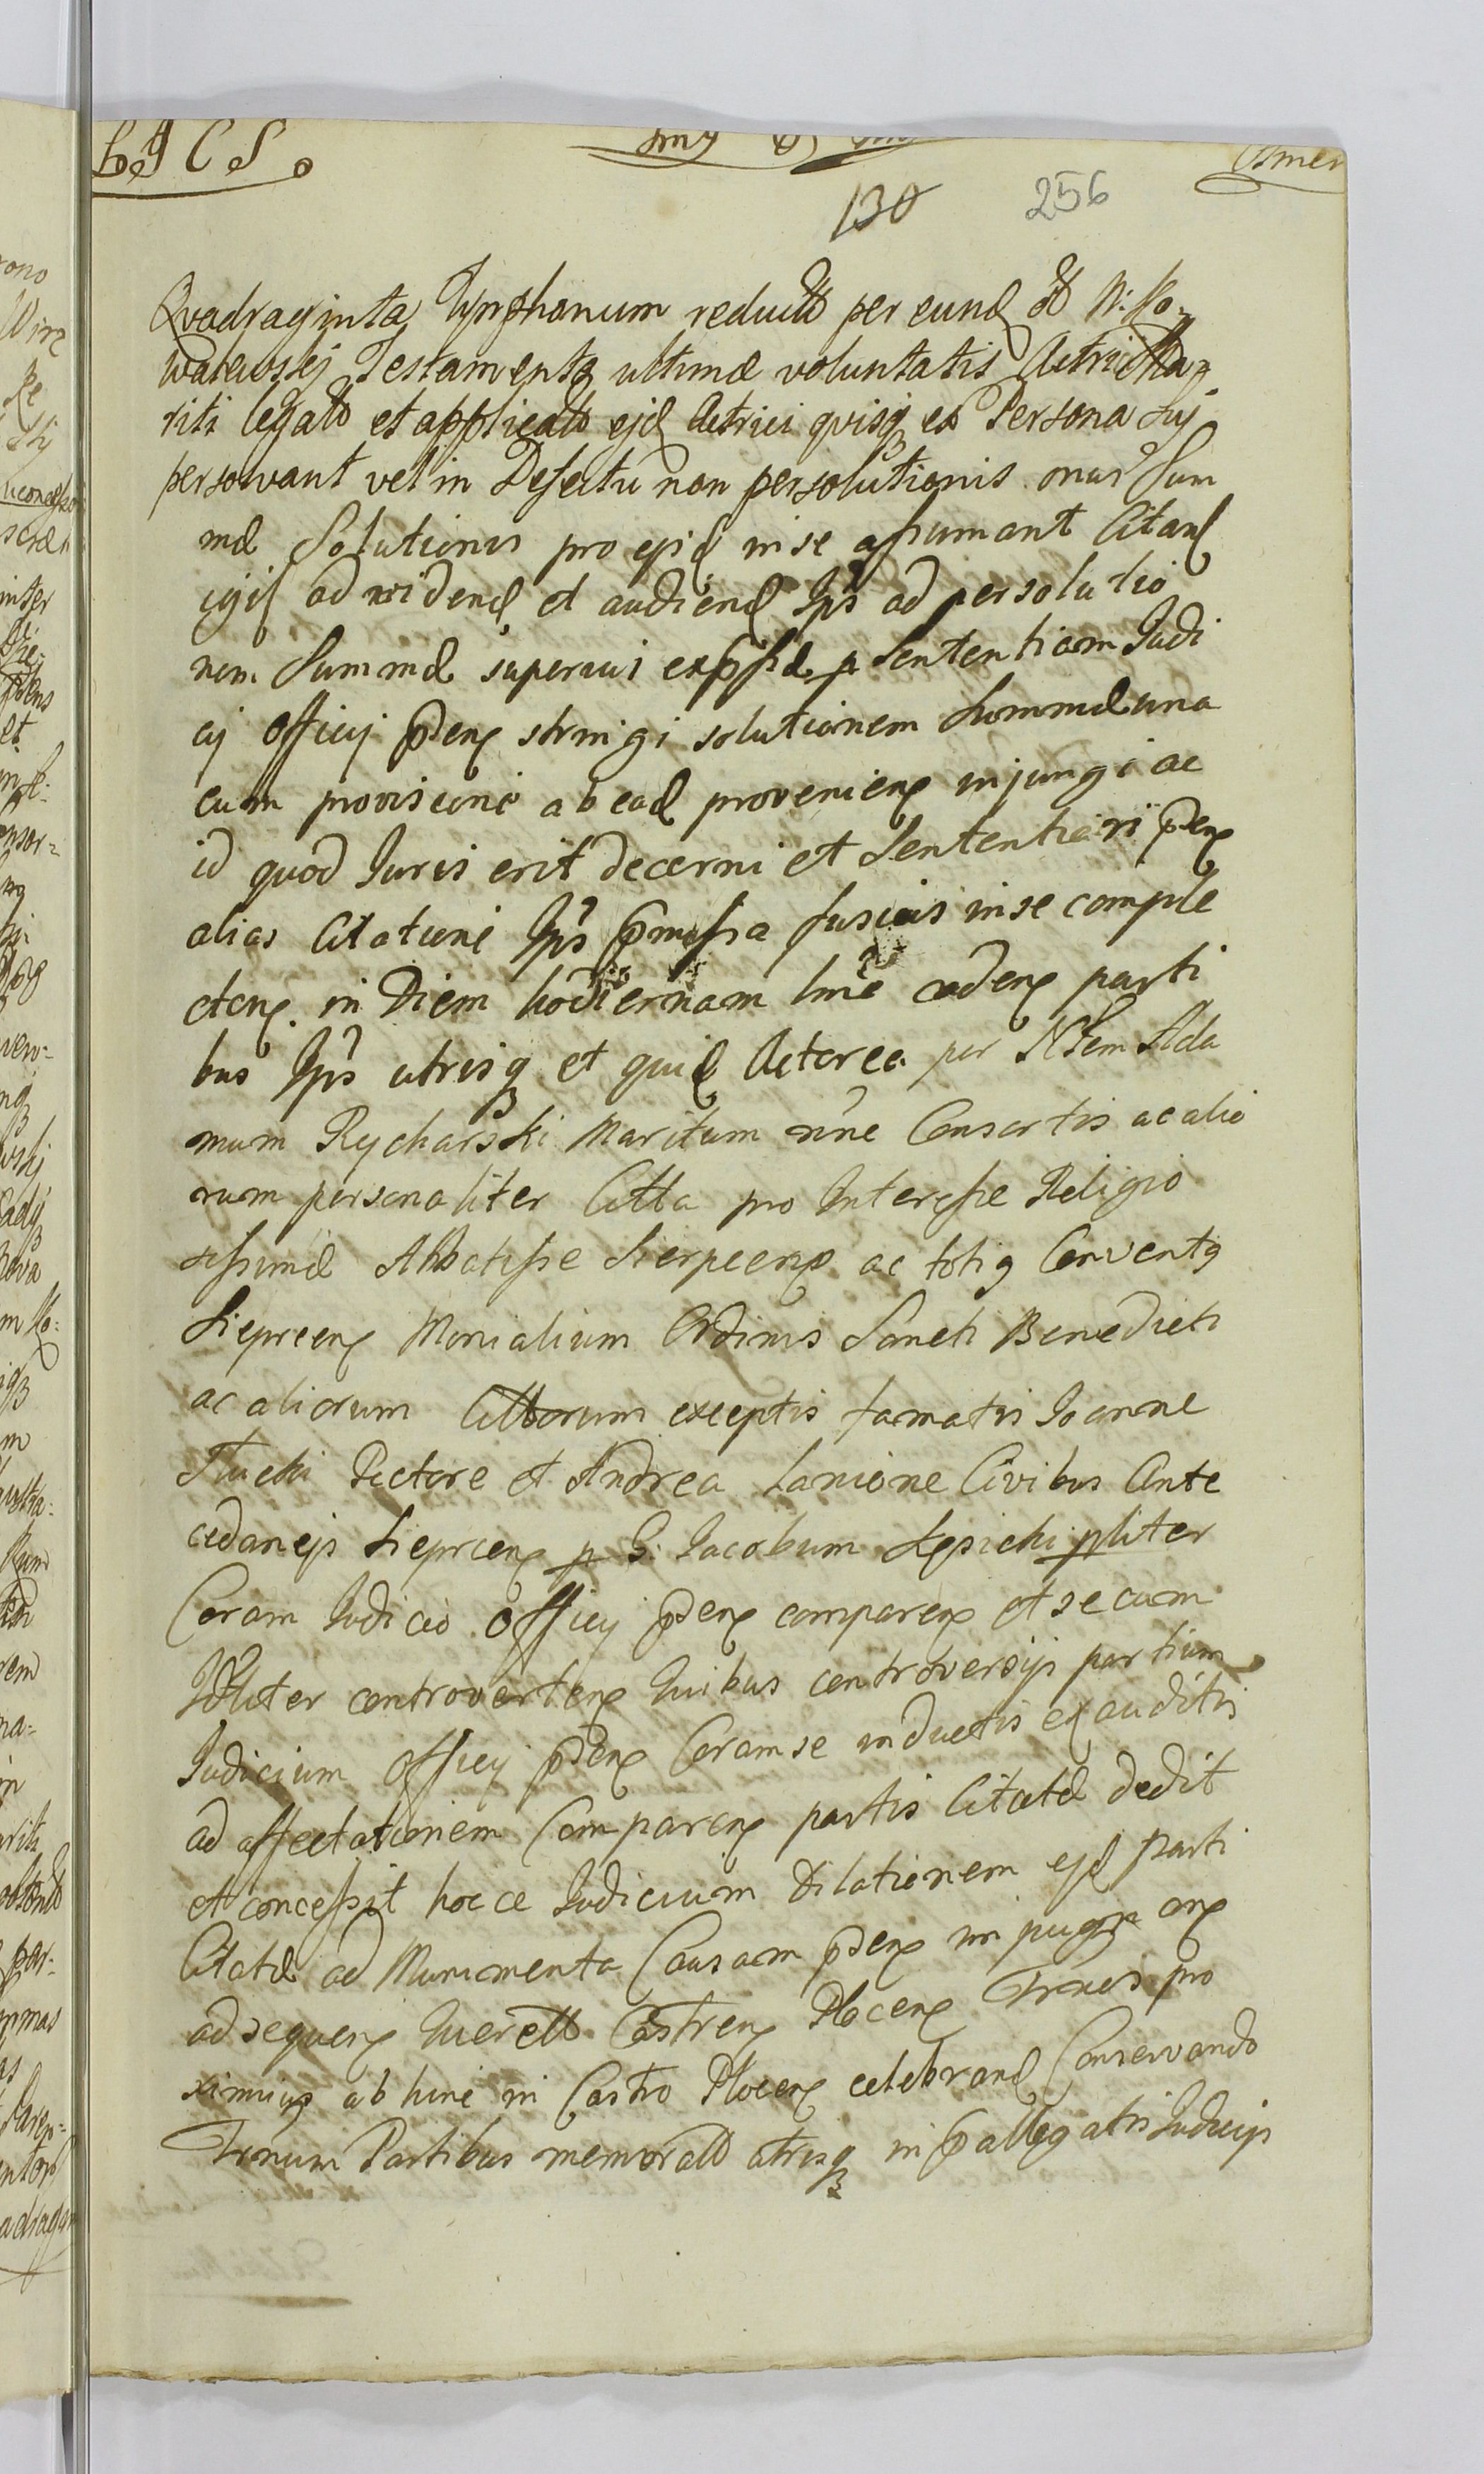 130 256
Quadraginta Tynphonum reductt per eund
Testamento ultimæ voluntatis Actrici Ma=
riti legato et applicato ejd Actrici quisq ex Persona Sui
persolvant vel in Defectu non persolutionis onus Sum
mæ Solutionis pro in se assumant Citand
ad videnq et audiend Ips ad persolutio
nem Summæ superius expssæ p Sententiam Judi
cij Officij pdens stringi solutionem Summæ una
cum provisione ab ead proveniens injungi ac
id quod Juris erit decerni et Sententiari pdens
alias Citatione Ips pmissa fusius in se comple
ctens in Diem hodiernam cadens parti
bus Ips utrisq et quid Actorea per Ada
mum Rycharski Maritum nne Consortis ac alio
rum personaliter Citta pro Interesse Religio
sissimæ Abbatisse Sierpcens ac totiq Conventq
Sieprcens Monialium Ordinis Sancti Benedicti
ac aliorum Cittorum exceptis famatis Joanne
Pictore et Andrea Lanione Civibus Ante
cedanejs Sieprcens p G. Jacobum pliter
Coram Judicio Officij pdens comparens et secum
Jdliter controvertens Quibus controversijs partium
Judicium Officij pdens Coram se inductis exauditis
ad affectationem Comparens partis Citatæ dedit
et concessit hocce Judicium Dilationem ejd Parti
Citatæ ad Munimenta Causam pdens impugnans
ad sequens Querett Castrens Plocens Trnos pro
ximius abhinc in Castro Plocens celebrand Conservando
Trnum Partibus memoratt utrisq in pallegatis Judicijs